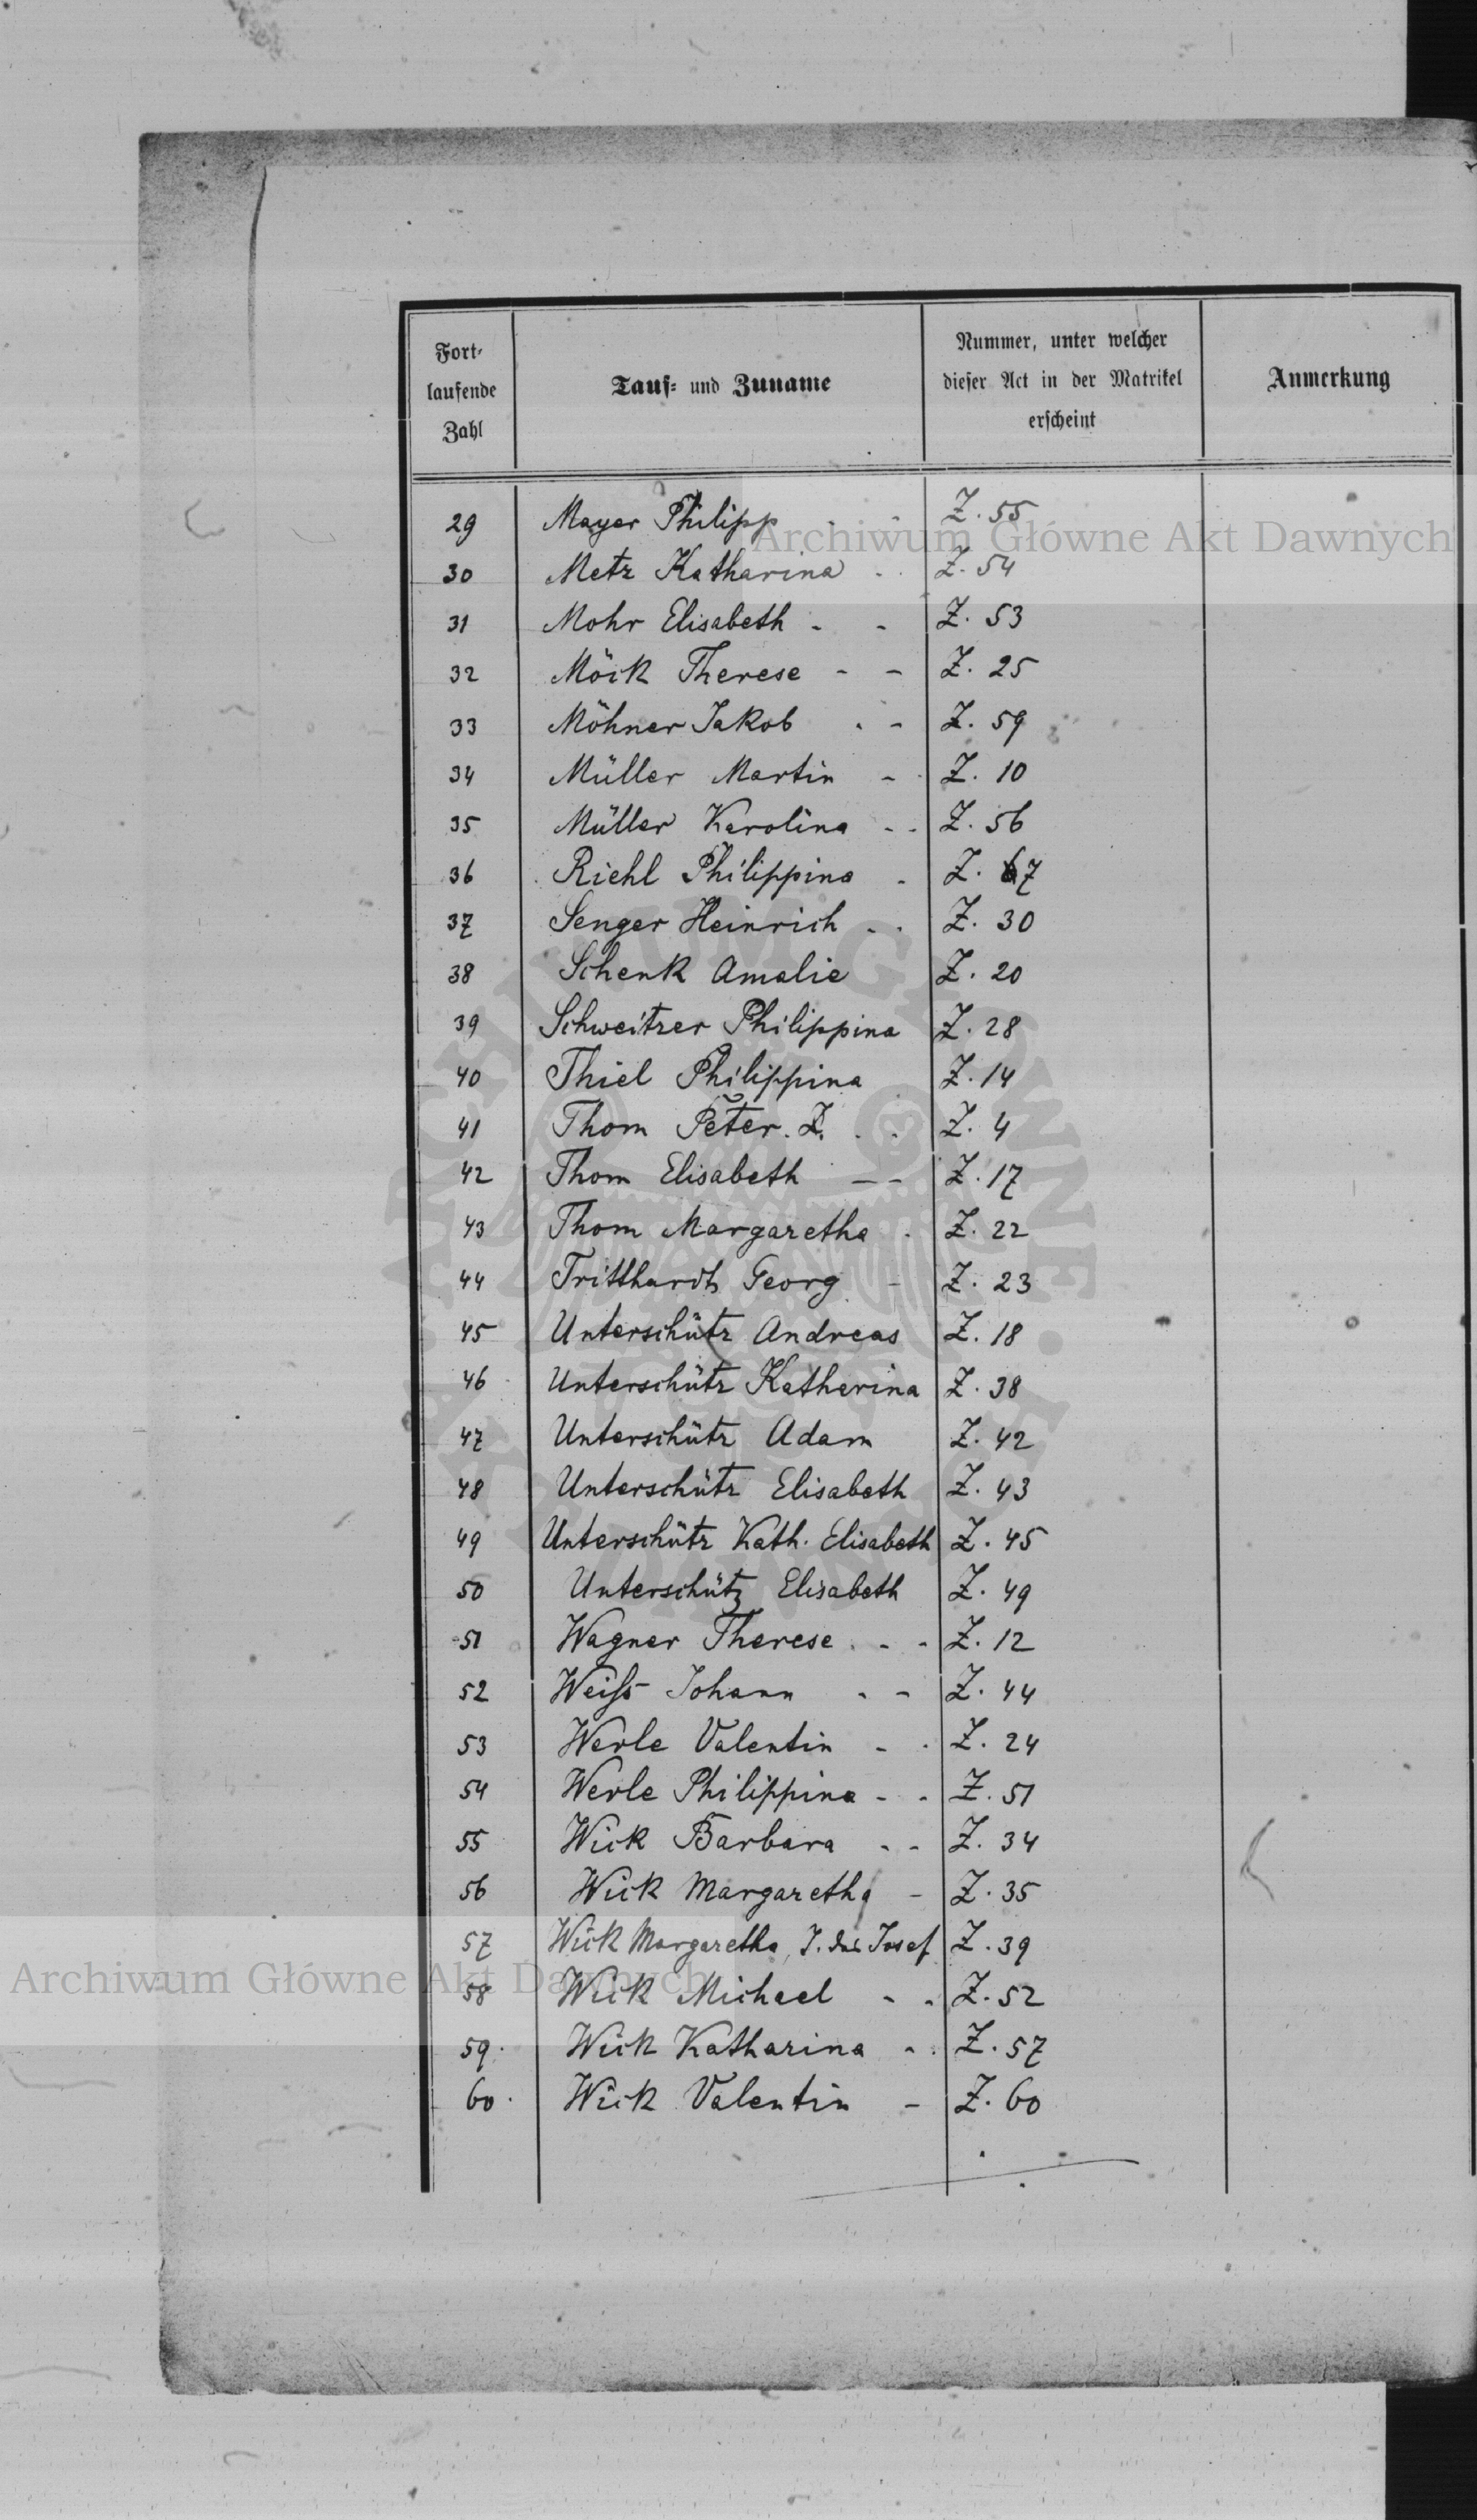 Fort-
laufende
Zahl
Tauf- und Zuname
Nummer, unter welcher
dieser Act in der Matrikel
erscheint
Anmerkung
29 Mayer Philipp - Z. 55
Archiwum Główne Akt Dawnych
30 Metz Katharina . . Z. 54
31 Mohr Elisabeth - - Z. 53
32 Möck Therese - - Z. 25
33 Möhner Jakob . - Z. 59
34 Müller Martin - . Z. 10
35 Müller Karolina - - Z. 56
36 Riehl Philippina - Z. 7
37 Senger Heinrich - . Z. 30
38 Schenk Amalie Z. 20
39 Schweitzer Philippina Z. 28
40 Thiel Philippina Z. 14
41 Thom Peter. . . Z. 4
42 Thom Elisabeth -- Z. 17
43 Thom Margaretha . Z. 22
44 Tritthardt Georg - Z. 23
45 Unterschütz Andreas Z. 18
46 Unterschütz Katharina Z. 38
47 Unterschütz Adam Z. 42
48 Unterschütz Elisabeth Z. 43
49 Unterschütz Kath. Elisabeth Z. 45
50 Unterschütz Elisabeth Z. 49
51 Wagner Therese . - - Z. 12
52 Weiss Johann . - Z. 44
53 Werle Valentin - . Z. 24
54 Werle Philippina - - Z. 51
55 Wick Barbara - - Z. 34
56 Wick Margaretha - Z. 35
57 Wick Margaretha, T. des Josef Z. 39
Archiwum Główne Akt Dawnych
58 Wick Michael - - Z. 52
59. Wick Katharina - . Z. 57
60. Wick Valentin - Z. 60